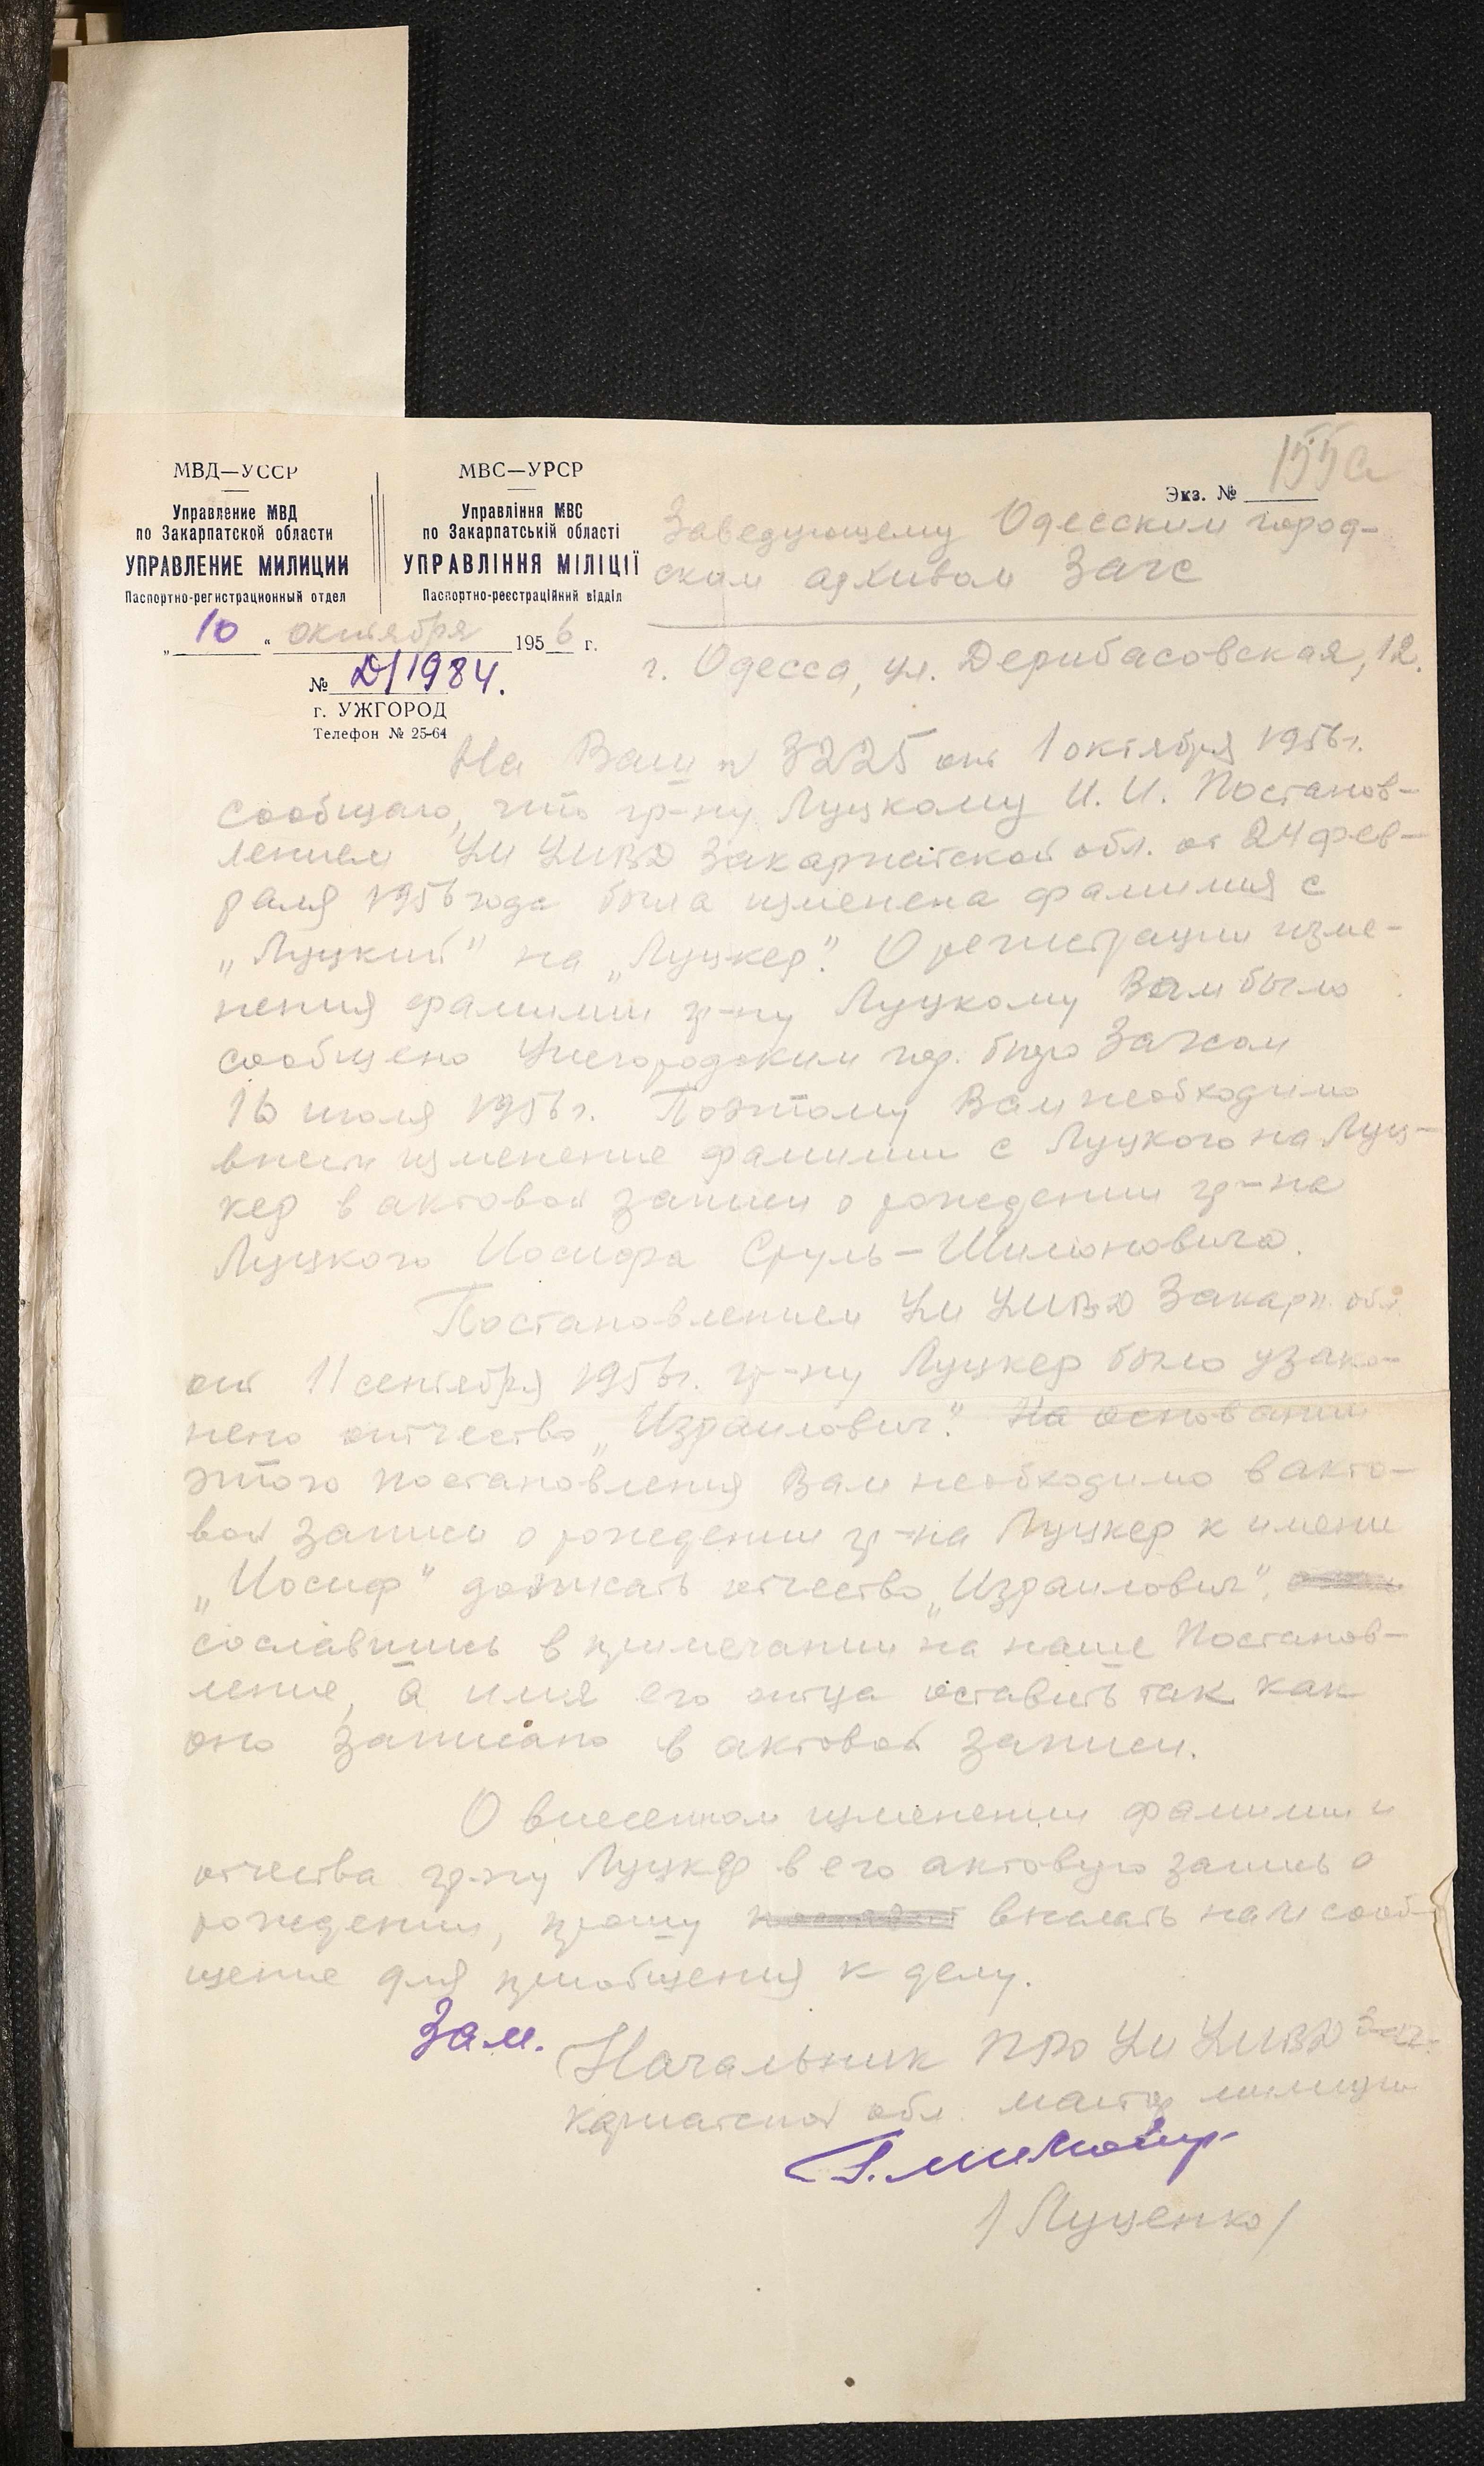 155а
Экз. №
МВД—УССР
Управление МВД
по Закарпатской области
УПРАВЛЕНИЕ МИЛИЦИИ
Паспортно-регистрационный отдел
МВС—УРСР
Управління МВС
по Закарпатській області
УПРАВЛІННЯ МІЛІЦІЇ
Паспортно-реєстраційний відділ
„10“ октября 1956 г.
№ Д/1984.
г. УЖГОРОД
Телефон № 25-64
Заведующему Одесским город-
ским архивом Загс
г. Одесса, ул. Дерибасовская, 12.
На Ваш № 3225 от 1 октября 1956 г.
сообщаю, что гр-ну Луцкому И. И. Постанов-
лением УМ УМВД Закарпатской обл. от 24 фев-
раля 1956 года была изменена фамилия с
„Луцкий“ на „Луцкер“. О регистрации изме-
нения фамилии гр-ну Луцкому Вам было
сообщено Ужгородским гор. бюро Загсом
16 июля 1956 г. Поэтому Вам необходимо
внести изменение фамилии с Луцкого на Луц-
кер в актовой записи о рождении гр-на
Луцкого Иосифа Сруль-Шимоновича.
Постановлением УМ УМВД Закарп. обл.
от 11 сентября 1956 г. гр-ну Луцкер было узако-
нено отчество „Израилович“. На основании
этого постановления Вам необходимо в акто-
вой записи о рождении гр-на Луцкер к имени
„Иосиф“ дописать отчество „Израилович“,
сославшись в примечании на наше Постанов-
ление, а имя его отца оставить так как
оно записано в актовой записи.
О внесенном изменении фамилии и
отчества гр-ну Луцкер в его актовую запись о
рождении, прошу выслать нам сооб-
щение для приобщения к делу.
Зам. Начальник ПРО УМ УМВД За-
карпатской обл. майор милиции
/Луценко/